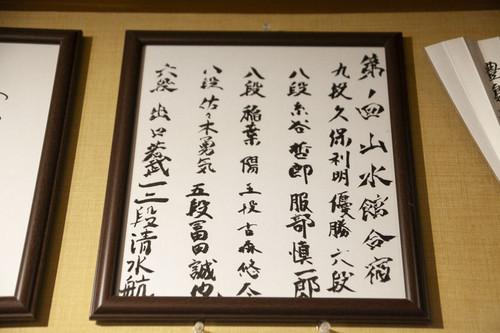 第1回山水館合宿
九段久保利明優勝 六段
八段糸谷哲郎 服部慎一郎
八段稲葉陽 五段古森悠太
八段佐々木勇気 五段冨田誠也
六段出口若武 三段清水航